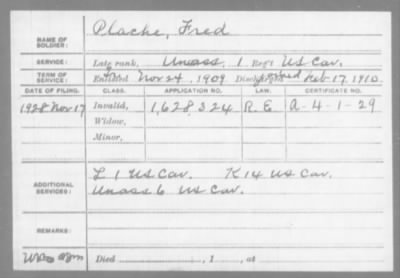 NAME OF SOLDIER: Plache, Fred
SERVICE: Late rank, Unass, 1 Reg't US Cav.
TERM OF SERVICE: Enlisted Nov 24, 1909, Discharged Feb 17, 1910.
DATE OF FILING. CLASS. APPLICATION NO. LAW. CERTIFICATE NO.
1928 Nov 17 Invalid, 1,628,324 R.E. A-4-1-29
Widow,
Minor,
ADDITIONAL SERVICES: L 1 US Cav. K 14 US Cav.
Unass 6 US Cav.
REMARKS:
Died , 1 , at